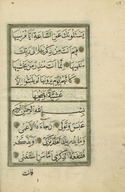 يسئلونك عن الساعة ايان مرسيها
فيم انت من ذكريها الى ربك
منتهيها انما انت منذر من يخشيها
كانهم يوم يرونها لم يلبثوا الا
عشية او ضحيها
بسم الله الرحمن الرحيم
عبس وتولى ان جاءه الاعمى
وما يدريك لعله يزكى او يذكر
فتنفعه الذكرى اما من استغنى
فانت